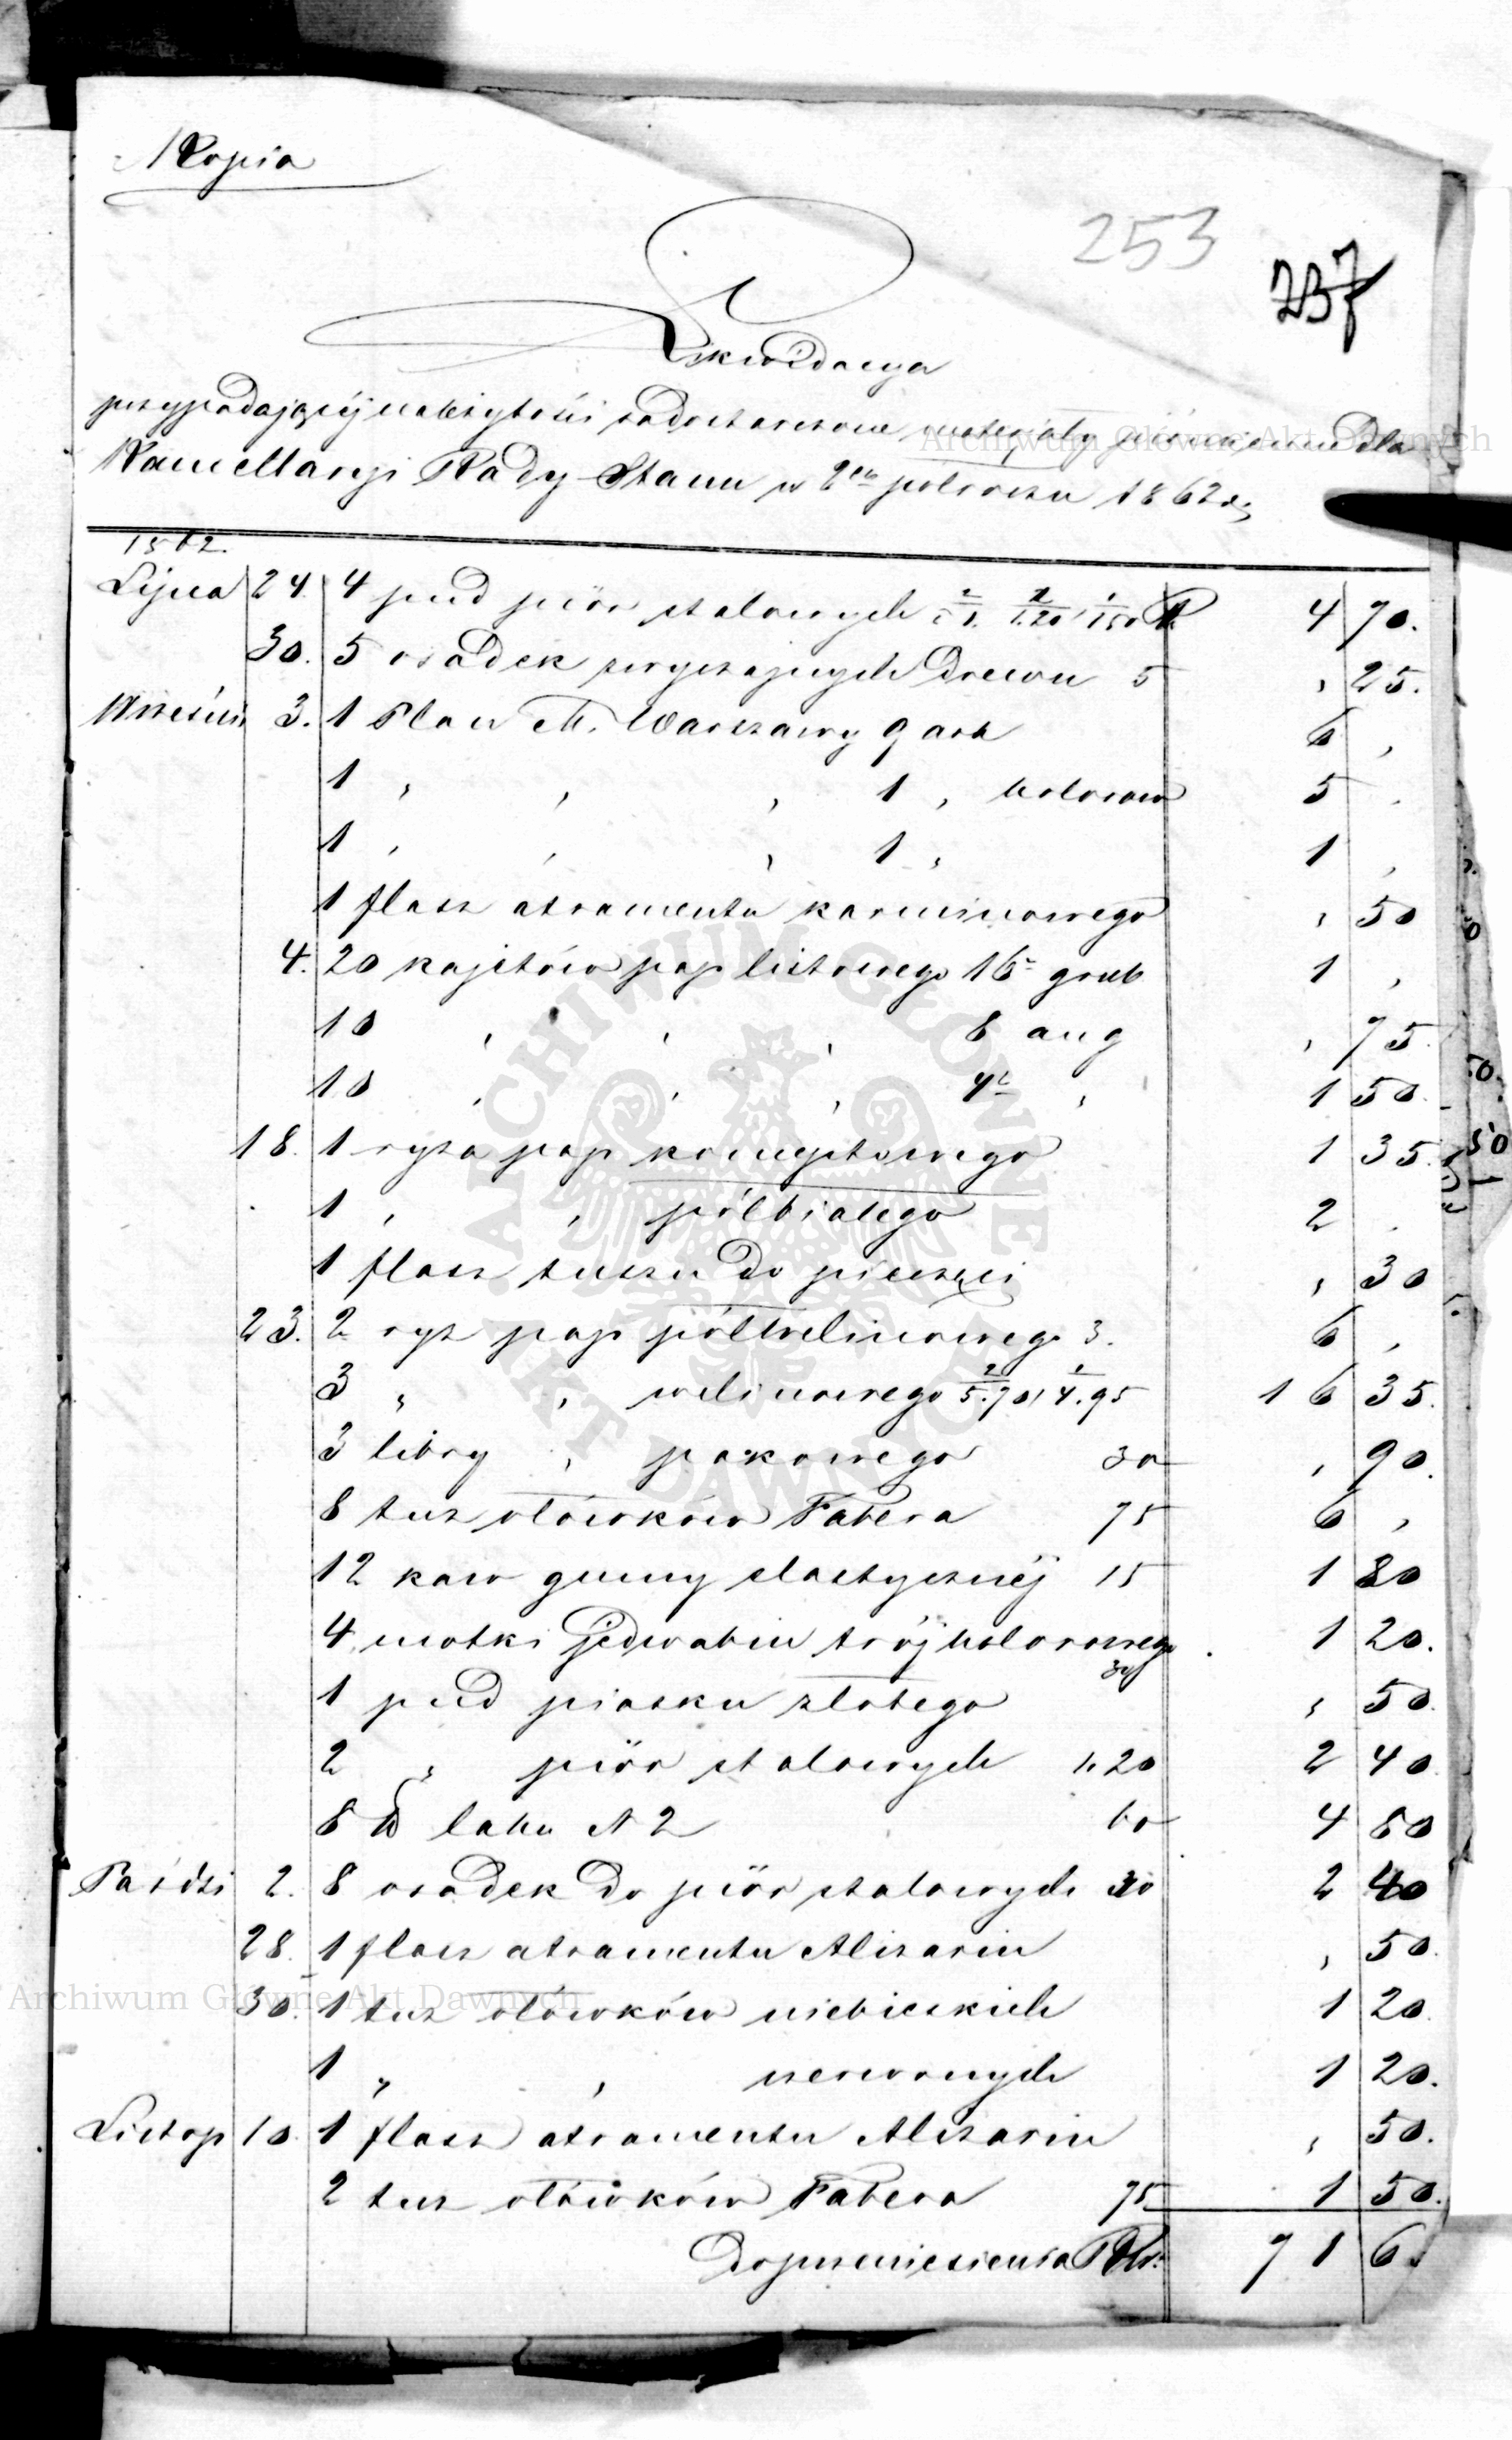 Kopia
253
237
Likwidacya
przypadającéj należytości za dostarczone materjały piśmienne dla
Kancellaryi Rady Stanu w 2em półroczu 1862 r.
1862.
Lipca 24. 4 pud piór stalowych 2/1. 1/1.20 1/1.50 R 4 70.
30. 5 osadek zwyczajnych drewn 5 , 25.
Wrześnie 3. 1 Plan M. Warszawy 9 ark 6 ,
1 , , , 1 , kolorow 5 .
1 , , , 1 , 1 ,
1 flasz atramentu karminowego , 50
4. 20 kajetów pap listowego 16o grub 1 ,
10 , , , 8 ang , 75.
10 , , , 4o , 1 50.
18. 1 ryza pap konceptowego 1 35.
1 , , półbiałego 2 .
1 flasz tuszu do pieczęci , 30
23. 2 ryz pap półwelinowego 3. 6 ,
3 , , welinowego 2/5.70, 1/4.95 16 35.
3 libry , pakowego 30 , 90.
8 tuz ołówków Fabera 75 6 ,
12 kaw gumy elastycznéj 15 1 80
4 motki jedwabiu trójkolorowego 30 1 20.
1 pud piasku złotego , 50.
2 , piór stalowych 1.20 2 40
8 ℔ laku N 2 60 4 80
Paźdz 2. 8 osadek do piór stalowych 30 2 40
28. 1 flasz atramentu Alizarin , 50.
30. 1 tuz ołówków niebieskich 1 20.
1 " , czerwonych 1 20.
Listop 10. 1 flasz atramentu Alizarin , 50.
2 tuz ołówków Fabera 75 1 50.
Do przeniesienia Rbr. 71 6
Archiwum Główne Akt Dawnych
Archiwum Główne Akt Dawnych
ARCHIWUM GŁÓWNE AKT DAWNYCH